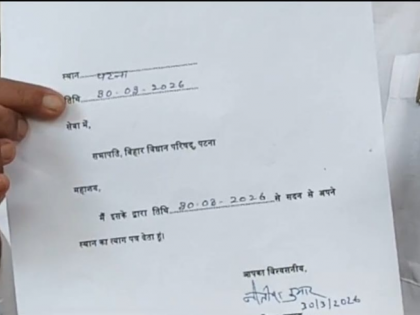 स्थान पटना
तिथि 30-03-2026
सेवा में,
सभापति, बिहार विधान परिषद्, पटना
महाशय,
मैं इसके द्वारा तिथि 30-03-2026 से सदन से अपने
स्थान का त्याग पत्र देता हूं।
आपका विश्वसनीय,
नीतीश कुमार
30/3/2026